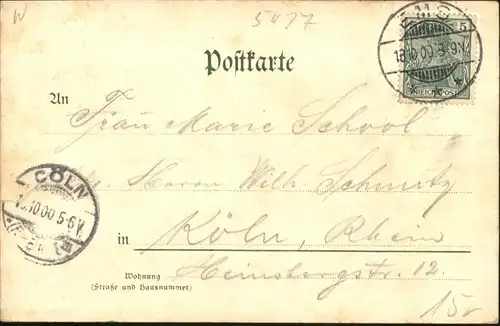 W
5477
EMS
5
18.10.00 8-9N.
REICHSPOST
Postkarte
An
Frau Marie School
Herrn Wilh. Schmitz
CÖLN
10 00 5-6V.
in Köln, Rhein
Wohnung
(Straße und Hausnummer)
Heinsbergstr. 12.
15r